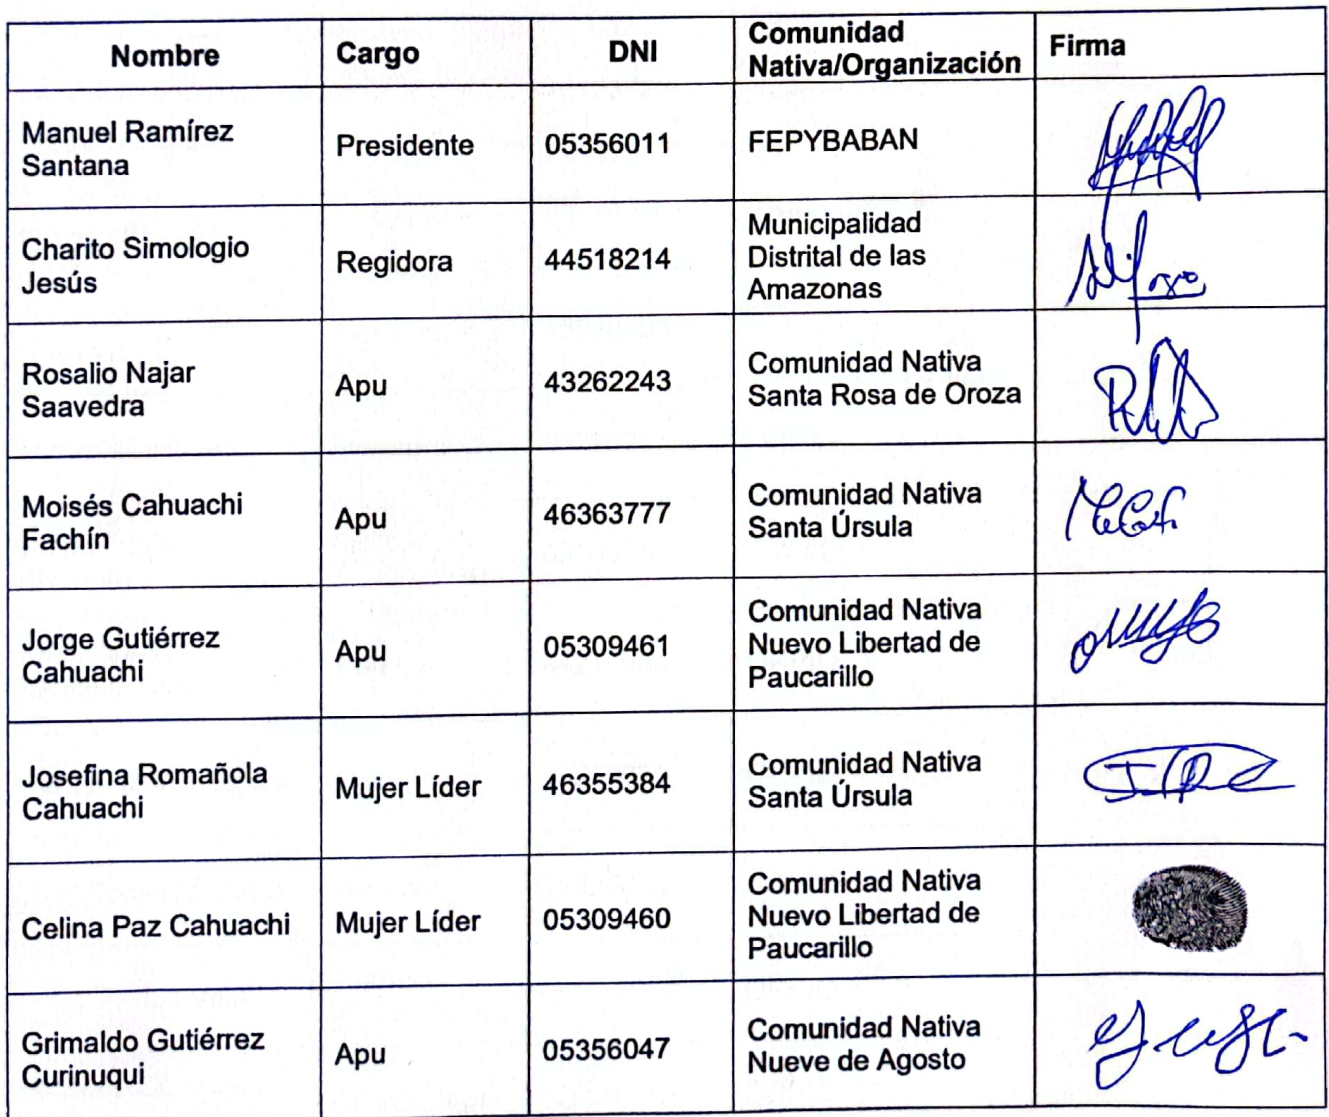 Nombre
Cargo
DNI
Comunidad
Nativa/Organización
Firma
Manuel Ramírez
Santana
Presidente
05356011
FEPYBABAN
Charito Simologio
Jesús
Regidora
44518214
Municipalidad
Distrital de las
Amazonas
Rosalio Najar
Saavedra
Apu
43262243
Comunidad Nativa
Santa Rosa de Oroza
Moisés Cahuachi
Fachín
Apu
46363777
Comunidad Nativa
Santa Úrsula
Jorge Gutiérrez
Cahuachi
Apu
05309461
Comunidad Nativa
Nuevo Libertad de
Paucarillo
Josefina Romañola
Cahuachi
Mujer Líder
46355384
Comunidad Nativa
Santa Úrsula
Celina Paz Cahuachi
Mujer Líder
05309460
Comunidad Nativa
Nuevo Libertad de
Paucarillo
Grimaldo Gutiérrez
Curinuqui
Apu
05356047
Comunidad Nativa
Nueve de Agosto